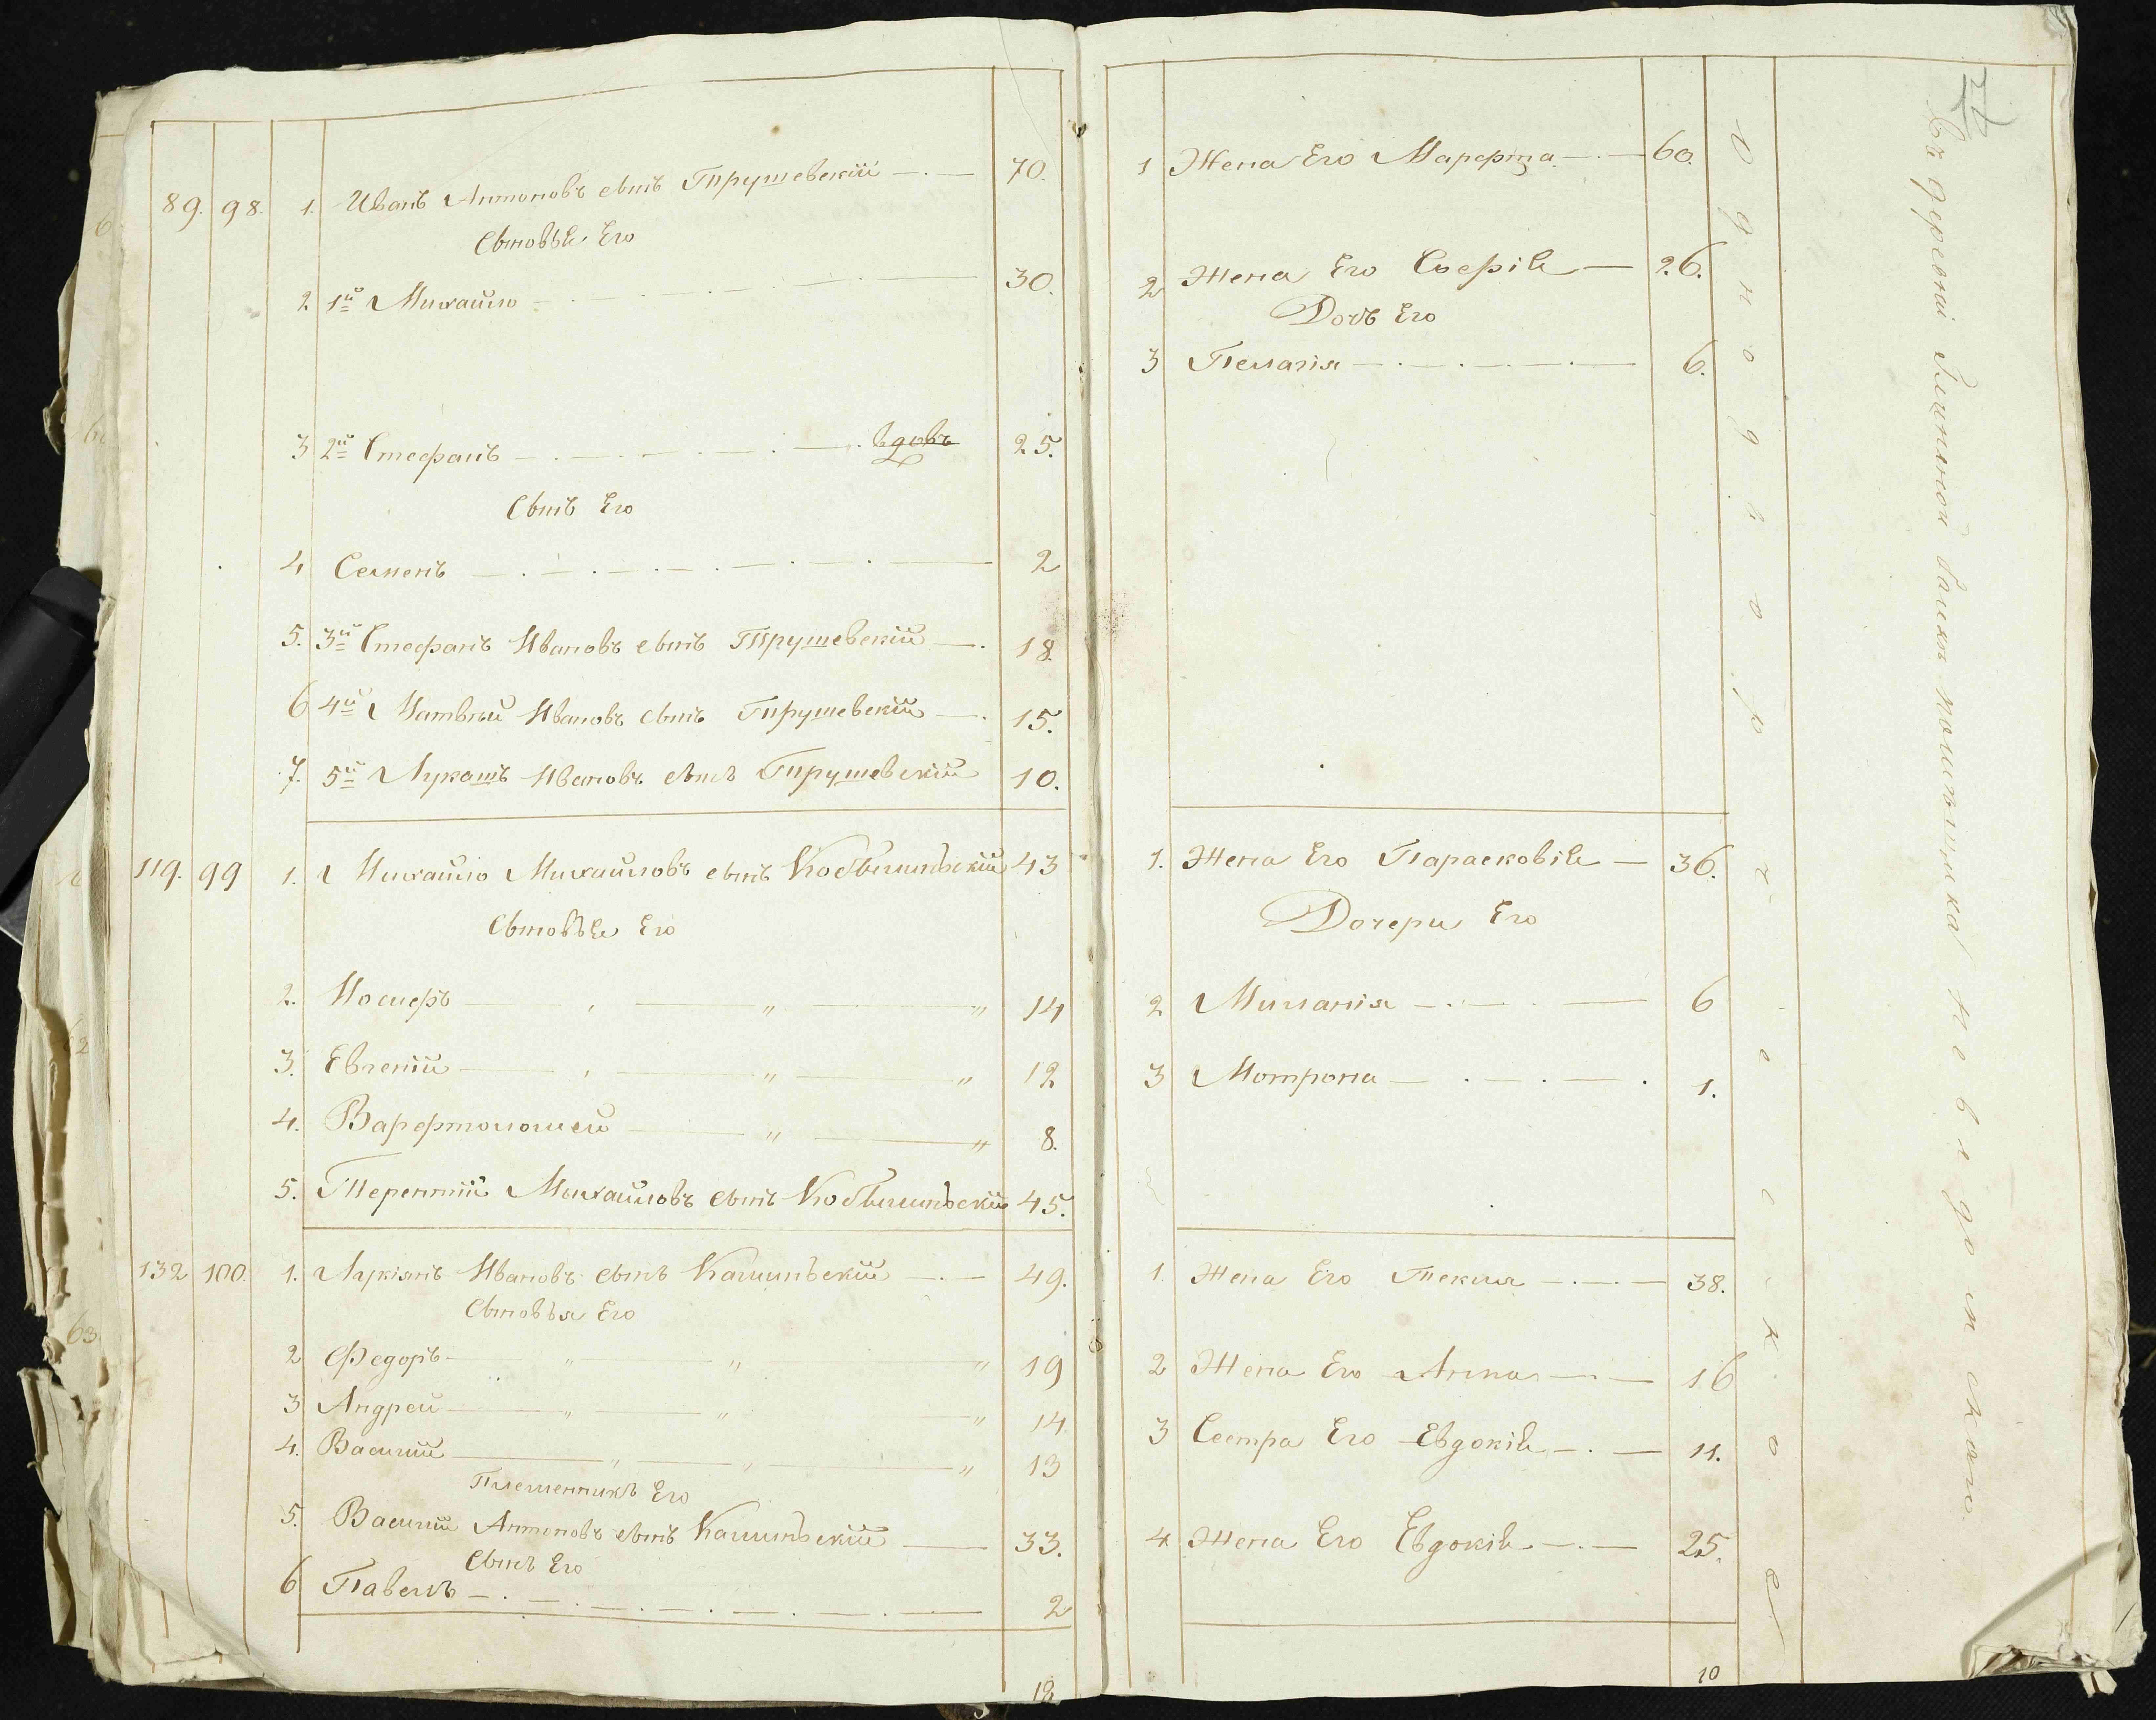 89. 98. 1. Иванъ Антоновъ сынъ Трушевскій 70.
Сыновья Его
2. 1й Михайло 30.
3 2й Стефанъ вдовъ 25.
Сынъ Его
4 Семенъ 2
5. 3й Стефанъ Ивановъ сынъ Трушевскій 18.
6 4й Матвѣй Ивановъ сынъ Трушевскій 15.
7. 5й Лукашъ Ивановъ сынъ Трушевскій 10.
119. 99 1. Михайло Михайловъ сынъ Кобылинскій 43
Сыновья Его
2. Иосифъ 14
3. Евгений 12
4. Варфтоломей 8.
5. Терентий Михайловъ сынъ Кобылинскій 45.
132 100. 1. Лукіянъ Ивановъ сынъ Калинскій 49.
Сыновья Его
2 Федоръ 19
3 Андрей 14.
4. Василий 13
Племенникъ Его
5. Василий Антоновъ сынъ Калинскій 33.
Сынъ Его
6 Павелъ 2
18
1 Жена Его Марфта 60.
2 Жена Его Софія 26.
Дочь Его
3 Пелагія 6.
1. Жена Его Парасковія 36.
Дочери Его
2 Миланія 6
3 Мотрона 1.
1. Жена Его Текля 38.
2 Жена Его Анна 16
3 Сестра Его Евдокія 11.
4 Жена Его Евдокія 25.
10
Однодворческое
Въ деревни